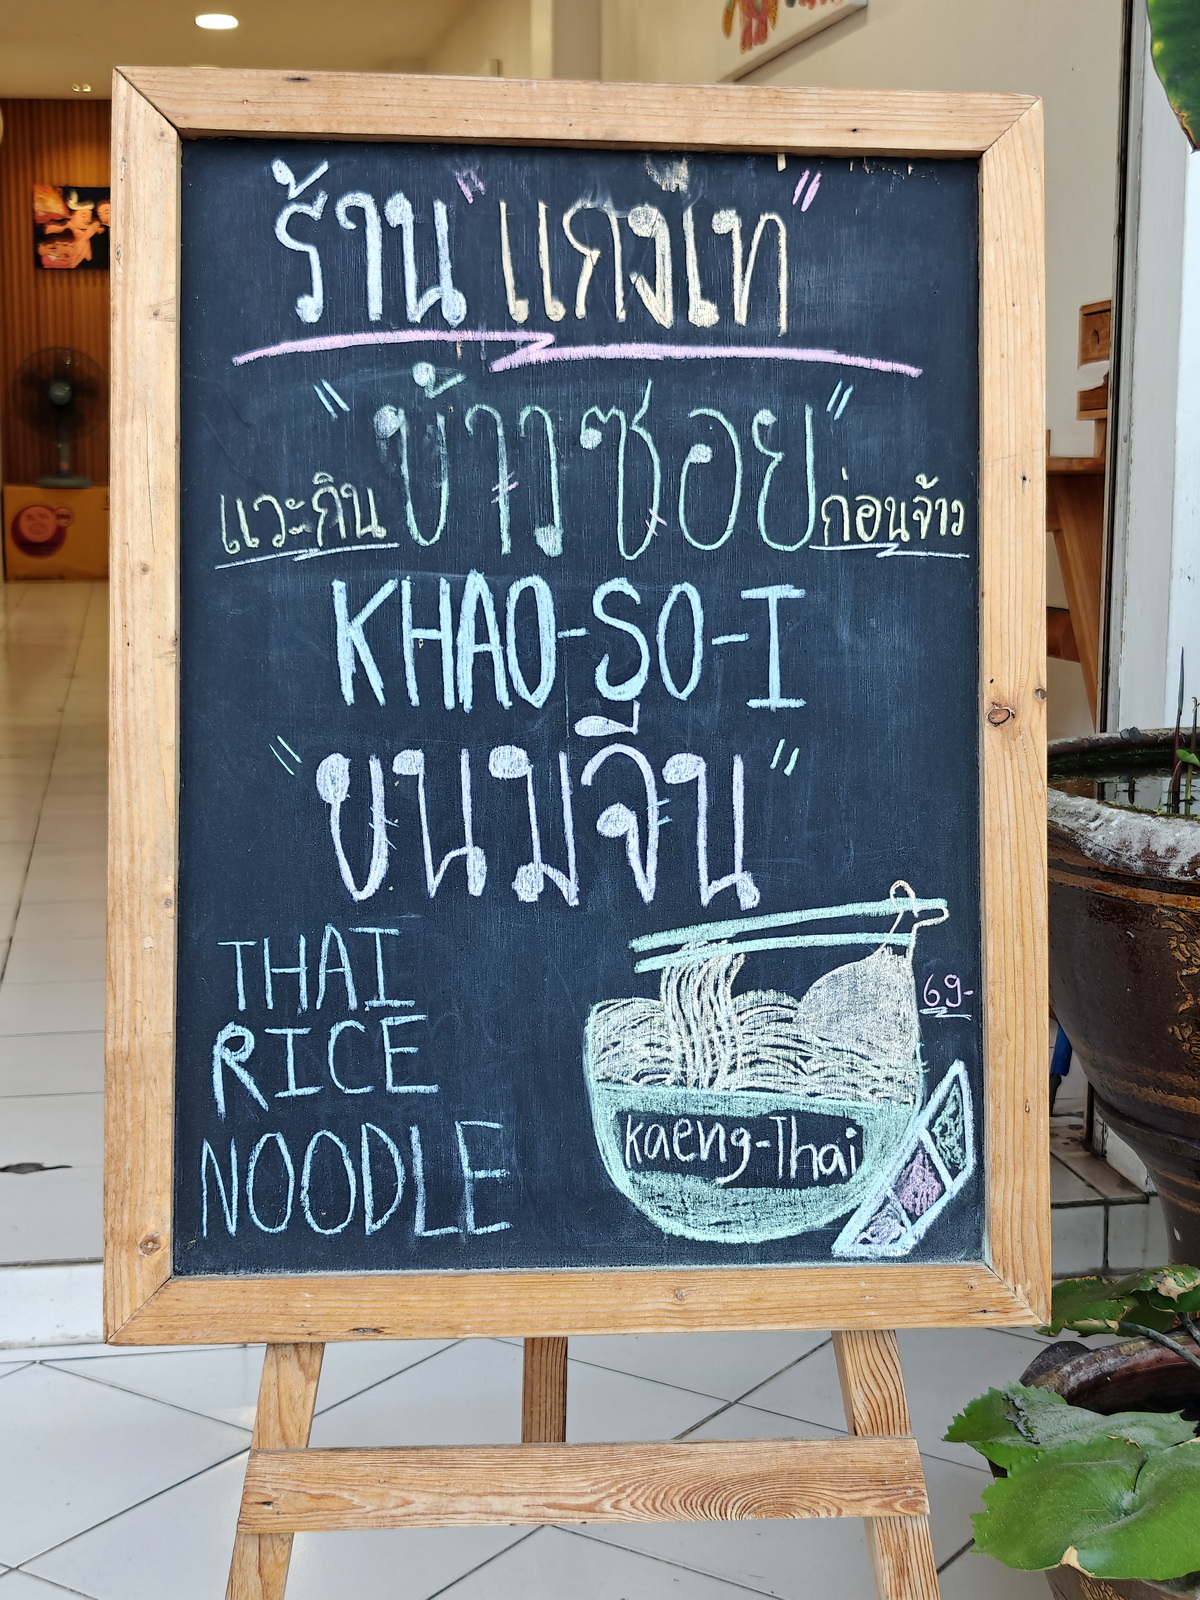 ร้าน "แกงเท"
"ข้าวซอย"
แวะกิน ก่อนจ้าว
KHAO-SO-I
"ขนมจีน"
THAI
RICE
NOODLE
69-
Kaeng-Thai